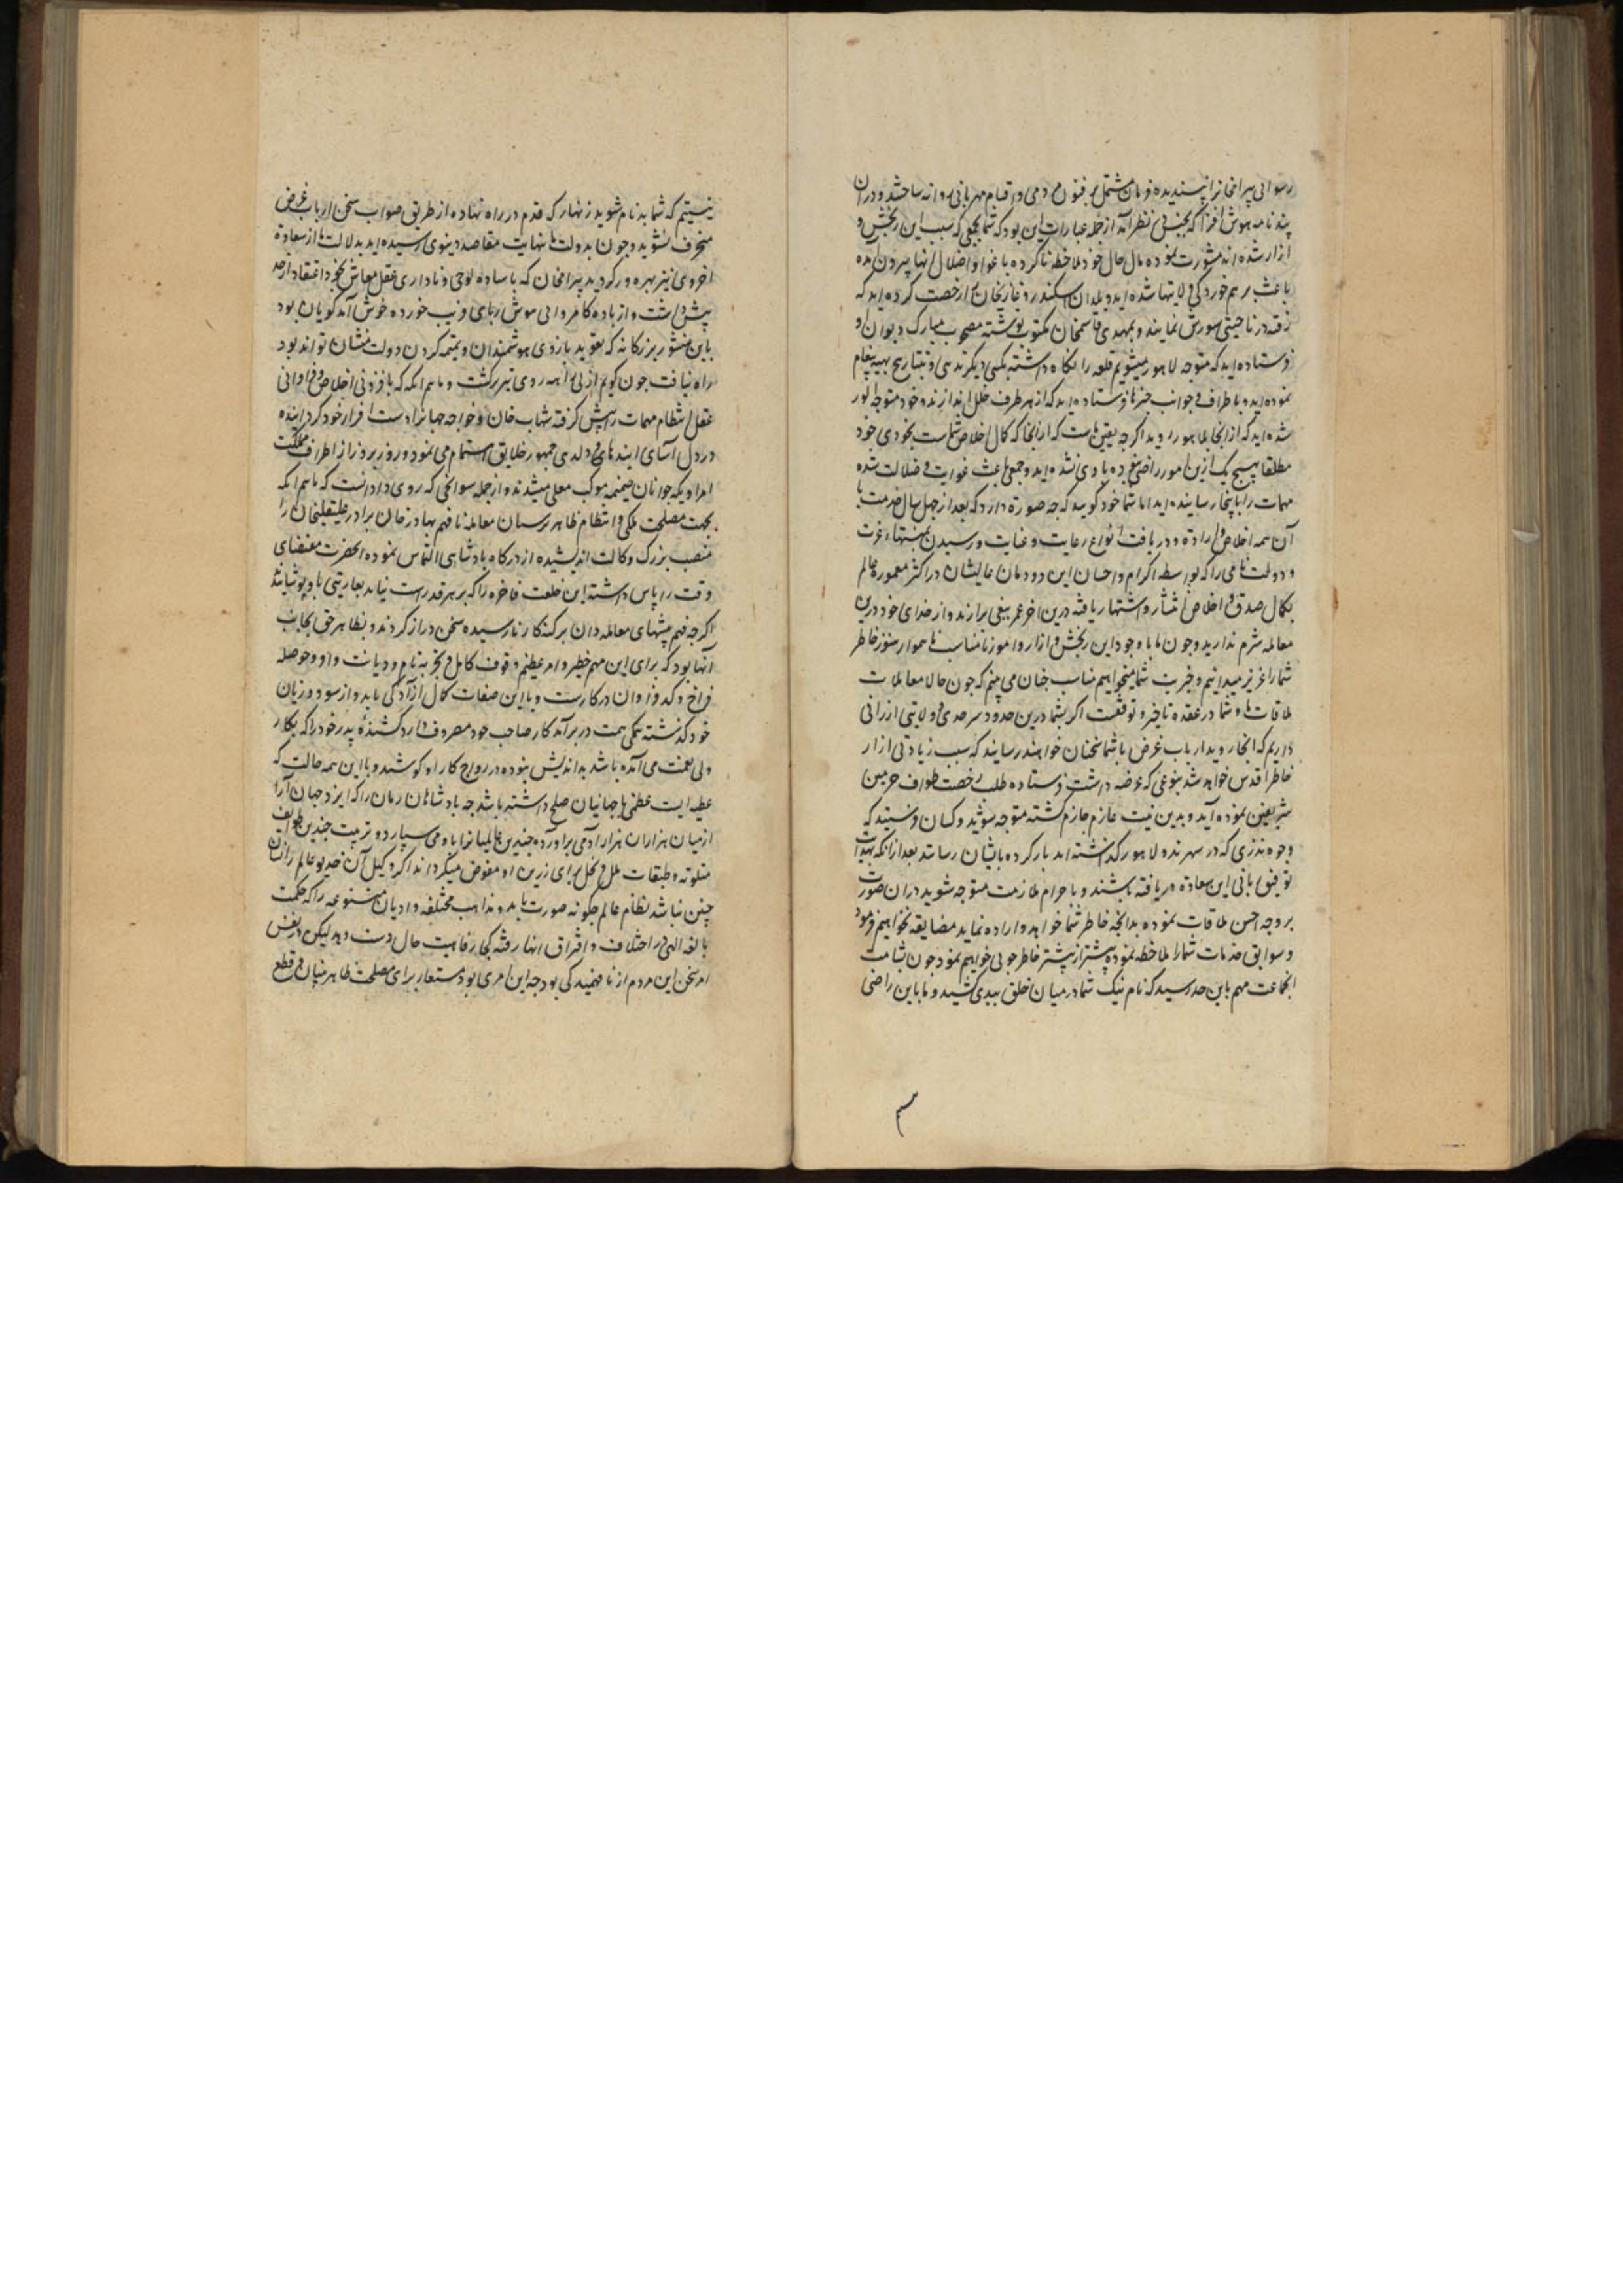 رسوائی بیرامخانرا پسندیده فرمان مشتمل بر فنون مردمی و اقسام مهربانی روانه ساختند و در آن
پندنامه هوش افزا که بجنس بنظر آمد از جمله عبارات این بود که شما بجمعی که سبب این رنجش و
آزار شده اند مشورت نموده مآل حال خود ملاحظه ناکرده باغوا و اضلال آنها بیرون آمده
باعث برهم خوردگی ولایتها شده اید و بلدان سکندر و غازیخان را رخصت کرده اید که
رفته در ناحیتی شورش نمایند و بمهدی قاسمخان مکتوب نوشته مصحوب مبارک دیوان
فرستاده اید که متوجه لاهور میشویم قلعه را نگاه داشته بکسی دیگر ندهی و بتتارخان پیغام
نموده اید و باطراف و جوانب خبرها فرستاده اید که از هر طرف خلل اندازند و خود متوجه الور
شده اید که از آنجا بلاهور روید اگرچه یقین ماست که از آنجا که کمال اخلاص شماست بخودی خود
مطلقا بهیچ یک ازین امور راضی نبوده بادی نشده اید و جمعی باعث غوایت و ضلالت شده
مهمات را باینجا رسانیده اند اما شما خود گویید که چه صورة دارد که بعد از چهل سال خدمت با
آن همه اخلاص و ارادة و دریافت انواع رعایت و عنایت و رسیدن بمنتهاء عزت
و دولت نامی را که بواسطه اکرام و احسان این دودمان عالیشان در اکثر معموره عالم
بکمال صدق و اخلاص انتشار و اشتهار یافته درین آخر عمر ببغی برارند و از خدای خود درین
معامله شرم ندارید و چون ما با وجود این رنجش و آزار و امور نامناسب ناهموار هنوز خاطر
شما را عزیز میدانیم و خیریت شما میخواهیم مناسب چنان می بینم که چون حالا معاملات
ملاقات ما و شما در عقده تاخیر و توقفست اگر بشما درین حدود سرحدی و ولایتی ارزانی
داریم که آنجا روید ارباب غرض باز شما سخنان خواهند رسانید که سبب زیادتی آزار
خاطر اقدس خواهد شد بنوعی که عرضه داشت فرستاده طلب رخصت طواف حرمین
شریفین نموده آید و بدین نیت عازم جازم گشته متوجه شوید و کسان فرستند که
وجوه نذری که در سهرند و لاهور گذاشته اند بار کرده بایشان رساند بعد از آنکه بهدایت
توفیق ربانی این سعادة دریافته باشند و باحرام ملازمت متوجه شوید در آن صورت
بر وجه احسن ملاقات نموده بدانچه خاطر شما خواهد و اراده نماید مضایقه نخواهیم فرمود
و سوابق خدمات شما را ملاحظه نموده بیشتر از پیشتر خاطر جوئی خواهیم نمود چون بشامت
آنجماعت مهم باین حد رسید که نام نیک شما در میان خلق ببدی کشید و ما باین راضی
نیستیم که شما بدنام شوید زنهار که قدم در راه نهاده از طریق صواب سخن ارباب غرض
منحرف نشوید و چون بدولت ما بنهایت مقاصد دنیوی رسیده اید بدلالت ما از سعادة
اخروی نیز بهره ور گردید بیرامخان که با ساده لوحی و ناداری عقل معاش بخود اعتقاد از حد
بیش داشت و از باده کامروائی هوش ربای فریب خورده خوش آمد گویان بود
باین منشور بزرگانه که تعوید بازوی هوشمندان و تمیمه گردن دولت منشان تواند بود
راه نیافت چون گویم از بی راهه روی تیزتر گشت و ماهم انکه که بافزونی اخلاص و فراوانی
عقل انتظام مهمات را پیش گرفته شهاب خان و خواجه جهانرا دست افزار خود گردانیده
در دل آسای آیندهای و دلدهی جمهور خلایق اهتمام می نمود و روز بروز از اطراف مملکت
امرا و یکه جوانان ضمیمه موکب معلی میشدند و از جمله سوانحی که روی داد آنست که ماهم انکه
بجهت مصلحت ملکی و انتظام ظاهر پرستان معامله نافهم بهادرخان برادر علیقلیخان را
منصب بزرگ وکالت اندیشیده از درگاه پادشاهی التماس نموده آنحضرت مقتضای
وقت را پاس داشته این خلعت فاخره را که بر هر قد راست نیاید بعاریتی باو پوشانید
اگرچه فهم پیشهای معامله دان بر کنه کار نارسیده سخن دراز کردند و بظاهر حق بجانب
آنها بود که برای این مهم خطیر و امر عظیم وقوف کامل و تجربه تام و دیانت وافر و حوصله
فراخ و کد فراوان در کارست و با این صفات کمال آزادگی باید و از سود و زیان
خود گذشته همگی همت در برآمد کار صاحب خود مصروف دارد کشندهٔ پدر خود را که بکار
ولی نعمت می آمده باشد بد اندیش نبوده در رواج کار او کوشد و با این همه حالت که
عطیه ایست عظمی با جهانیان صلح داشته باشد چه پادشاهان زمان را که ایزد جهان آرا
از میان هزاران هزار آدمی برآورده چندین عالمیانرا باو می سپارد و تربیت چندین طوایف
متلونه و طبقات ملل و نحل برای زرین او مفوض میگرداند اگر وکیل آن خدیو عالم را شان
چنین نباشد نظام عالم چگونه صورت یابد و مذاهب مختلفه و ادیان متنوعه را که حکمت
بالغه الهی در اختلاف و افتراق آنها رفته کی رفاهیت حال دست دهد لیکن در نفس
امر سخن این مردم از نافهمیدگی بود چه این امری بود مستعار برای مصلحت ظاهر بینان و قطع